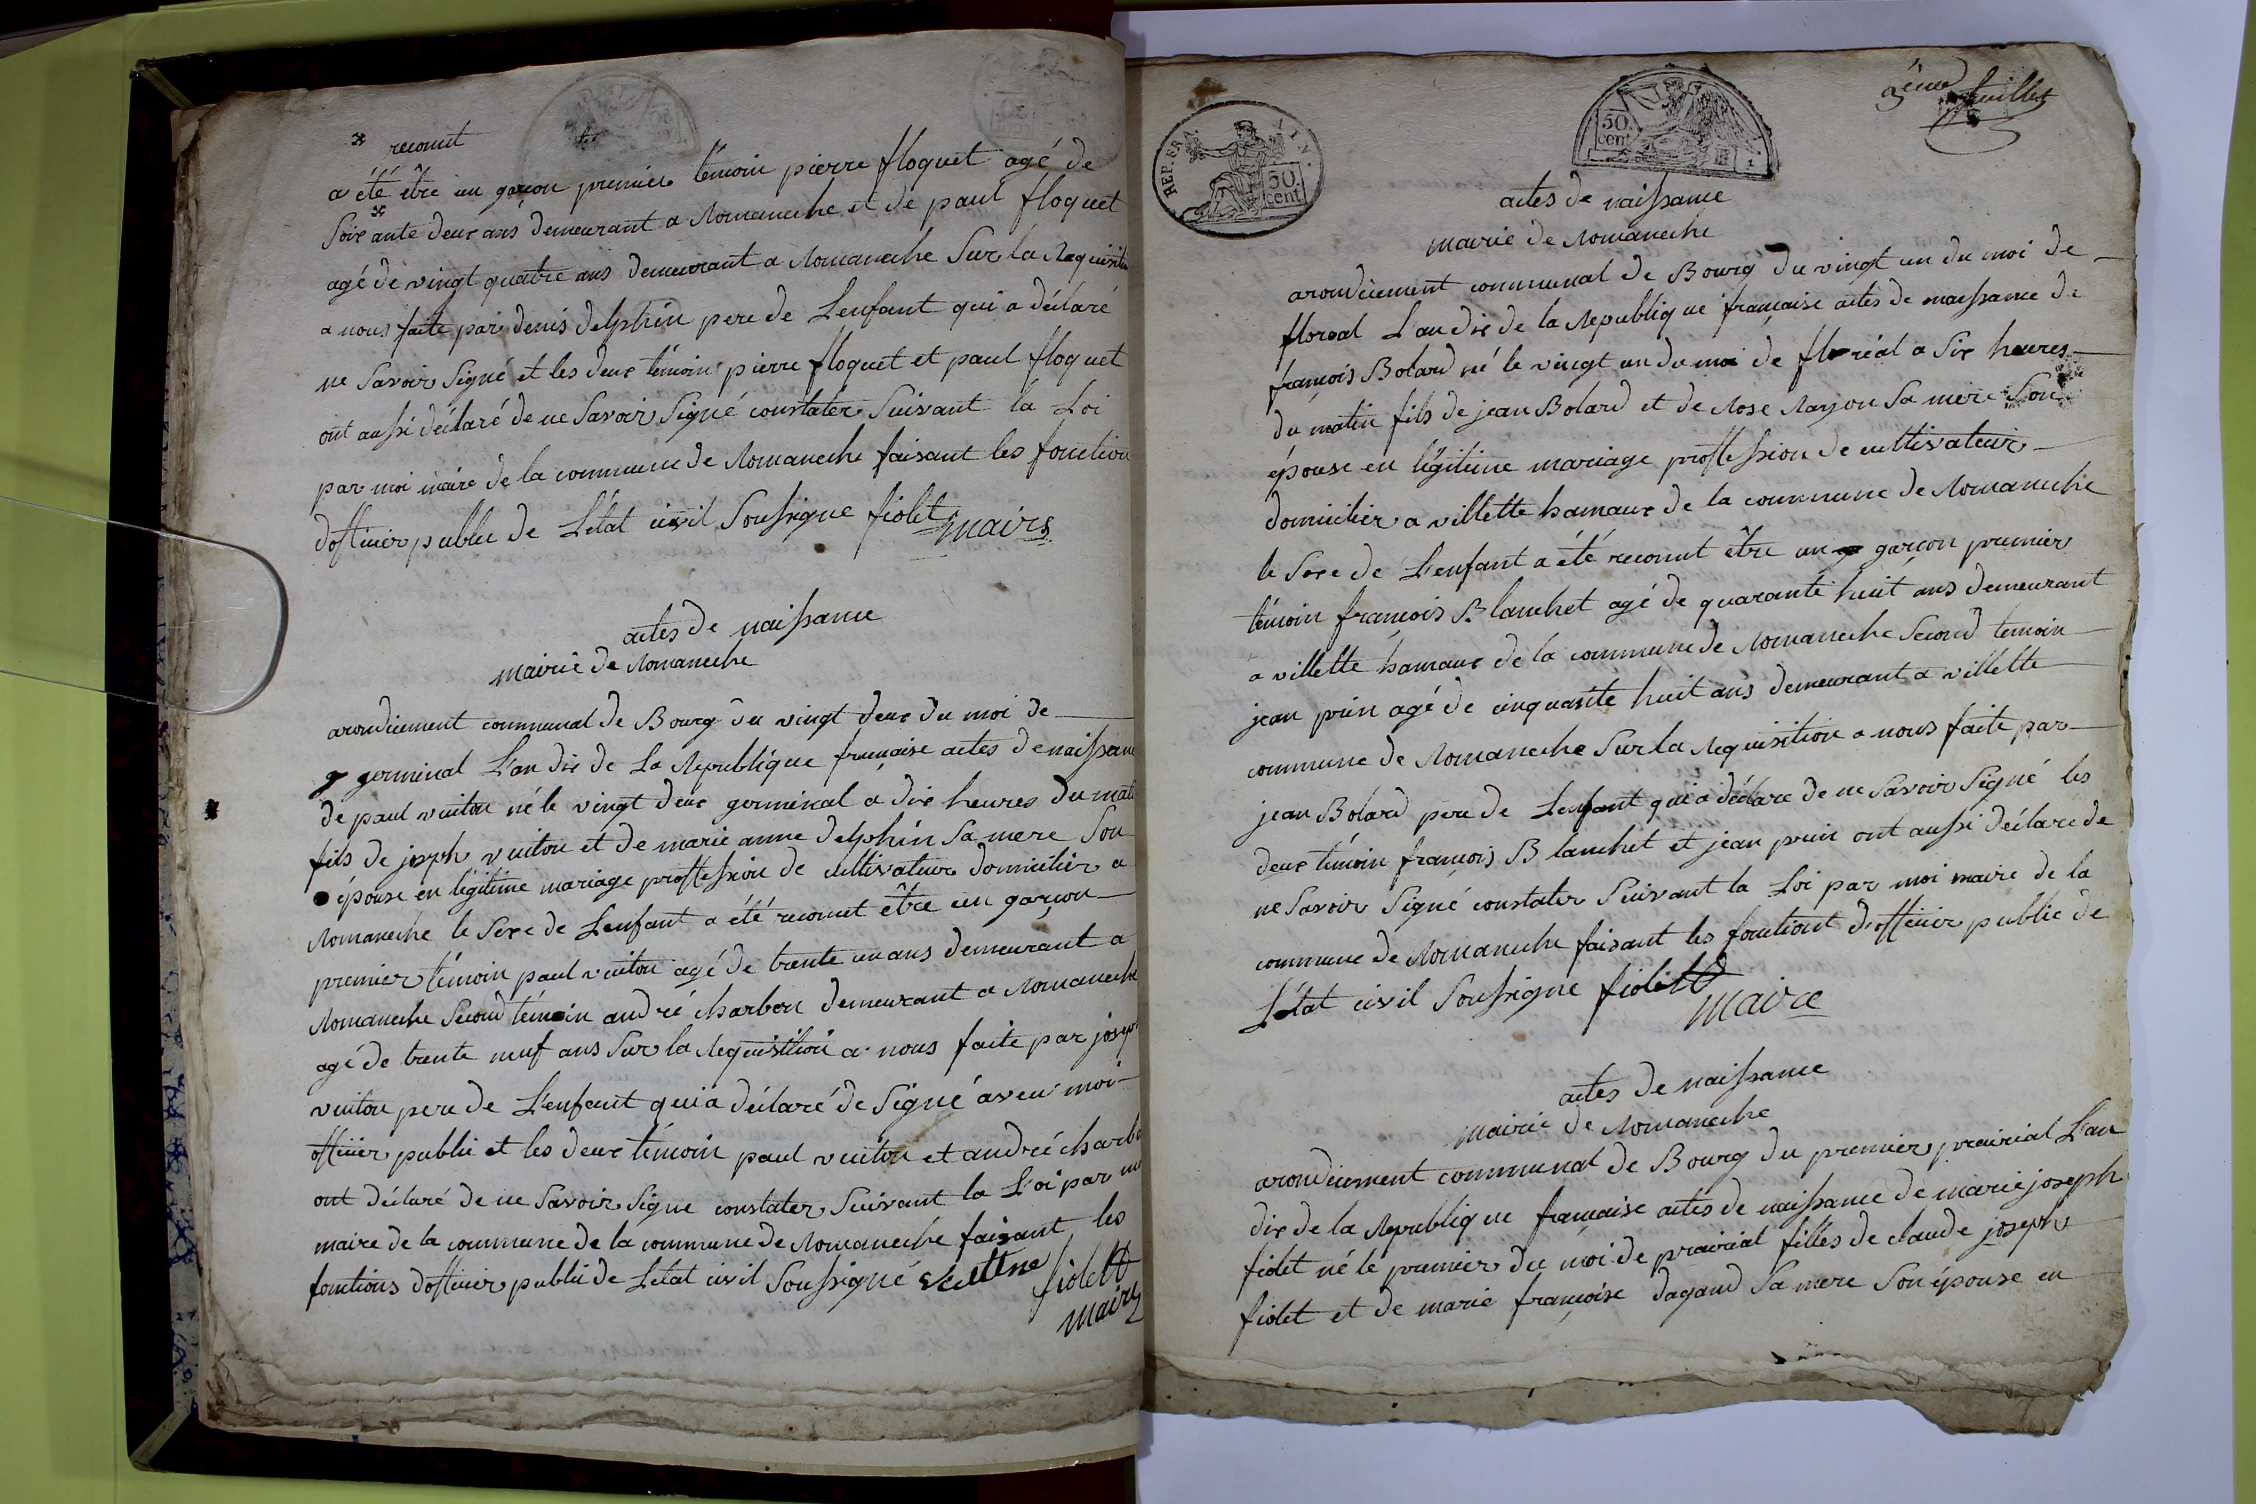 * reconut
a été être un garçon premier témoin pierre floquet agé de
*
Soixante deux ans demeurant a Romaneche et de paul floquet
agé de vingt quatre ans demeurant a Romaneche Sur la Requisition
a nous faite par denis delphin pere de L'enfant qui a déclaré
ne Savoir Signé et les deux témoin pierre floquet et paul floquet
ont aussi déclaré de ne Savoir Signé constater Suivant la Loi
par moi maire de la commune de Romaneche faisant les fonction
dofficier public de L'état civil Soussigne fiolet maire
actes de naissance
mairie de Romaneche
arondicement communal de Bourg du vingt deux du moi de
germinal L'an dix de La Republique française actes de naissance
de paul vuiton né le vingt deux germinal a dix heures du matin
fils de joseph vuiton et de marie anne delphin Sa mere Son
épouse en légitime mariage proffession de cultivateur domicilier a
Romaneche le Sexe de Lenfant a été reconut être un garçon
premier témoin paul vuiton agé de trente un ans demeurant a
Romaneche Second témoin andré charbon demeurant a Romaneche
agé de trente neuf ans Sur la Requisition a nous faite par joseph
vuiton pere de L'enfant qui a déclaré de Signé avec moi
officier public et les deux témoin paul vuiton et andré charbon
ont déclaré de ne Savoir Signe constater Suivant la Loi par moi
maire de la commune de la commune de Romaneche faisant les
fonctions dofficier public de Letat civil Soussigné fiolet
maire
REP. FRA.
50 cent
50 cent
3eme feuillet
actes de naissance
mairie de Romaneche
arondicement communal de Bourg du vingt un du moi de
floreal L'an dix de la Republique française actes de naissance de
françois Bolard né le vingt un du moi de floréal a Six heures
du matin fils de jean Bolard et de Rose Rayon Sa mere Son
épouse en légitime mariage proffession de cultivateur
domicilier a villette hamaux de la commune de Romaneche
le Sexe de L'enfant a été reconut être un garçon premier
témoin françois Blanchet agé de quarante huit ans demeurant
a villette hamaux de la commune de Romaneche Second temoin
jean prin agé de cinquante huit ans demeurant a villette
commune de Romaneche Sur la Requisition a nous faite par
jean Bolard pere de Lenfant qui a déclare de ne Savoir Signé les
deux témoin françois Blanchet et jean prin ont aussi déclare de
ne Savoir Signé constater Suivant la Loi par moi maire de la
commune de Romaneche faisant les fonctiont dofficier public de
L'état civil Soussigne fiolet
maire
actes de naissance
mairie de Romaneche
arondicement communal de Bourg du premier prairial L'an
dix de la Republique française actes de naissance de marie joseph
fiolet né le premier du moi de prairial filles de claude joseph
fiolet et de marie françoise dagand Sa mere Son épouse en